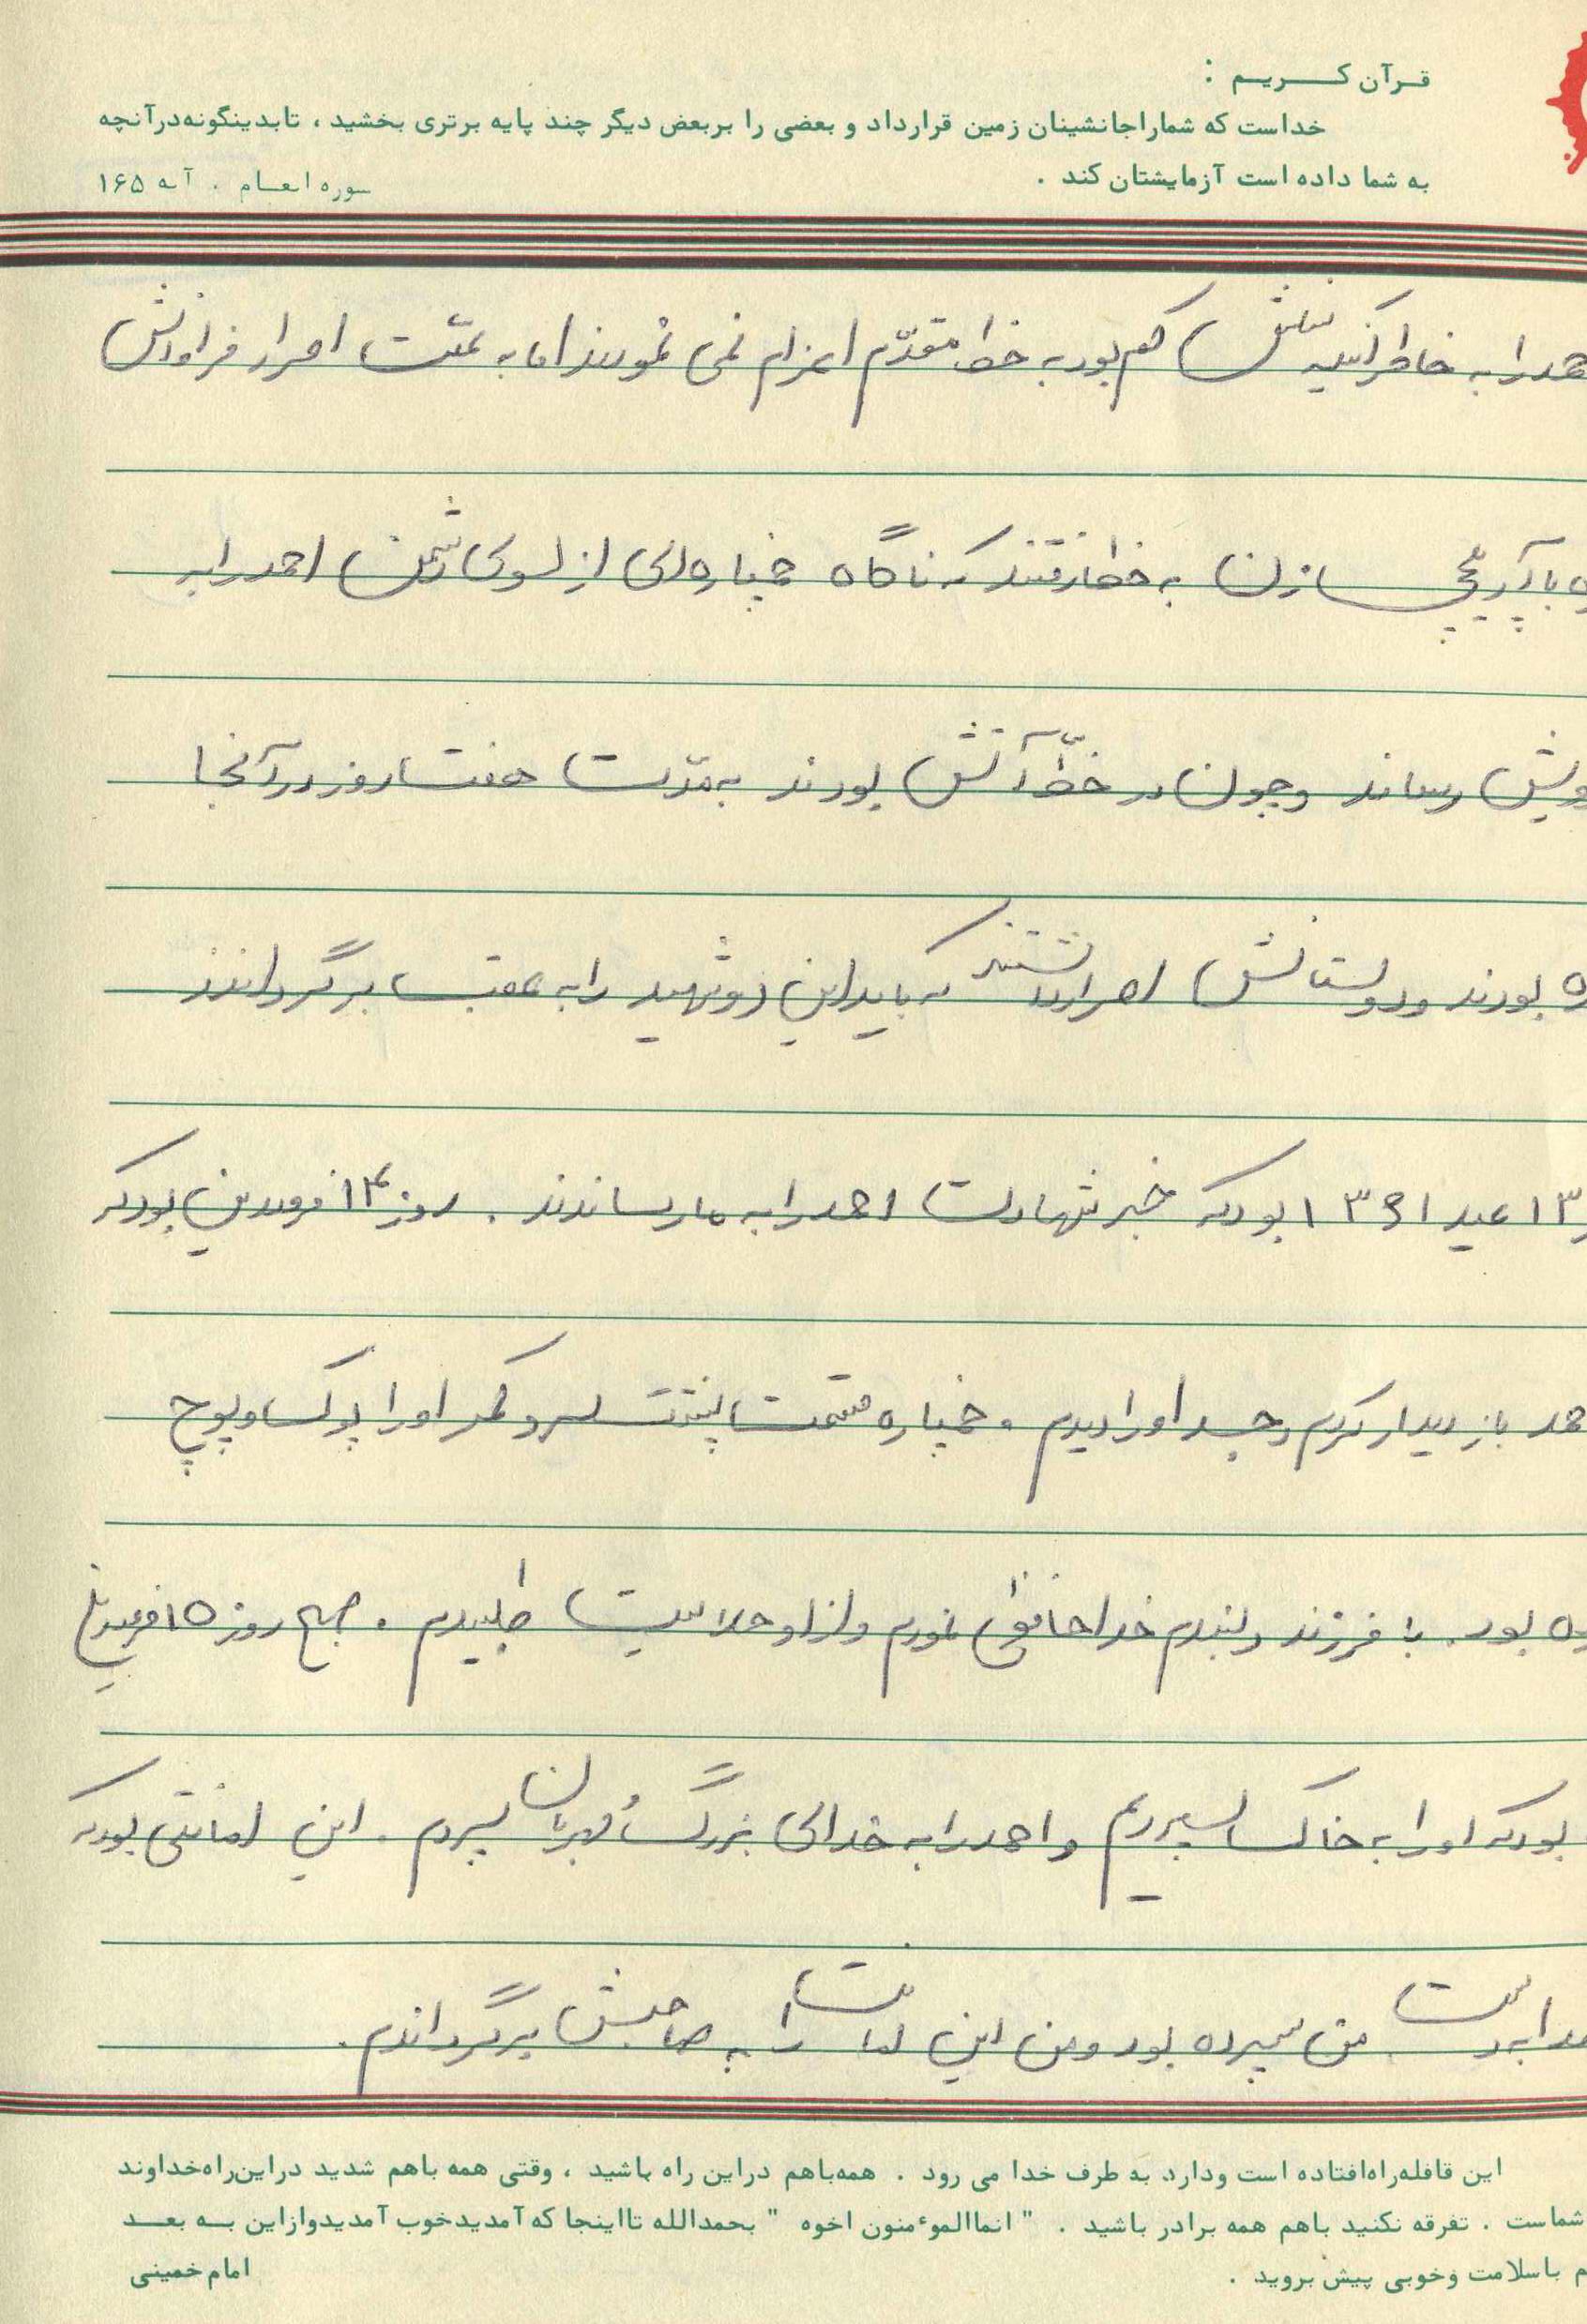 قرآن کریم :
خداست که شمارا جانشینان زمین قرارداد و بعضی را بربعض دیگر چند پایه برتری بخشید ، تابدینگونه درآنچه
به شما داده است آزمایشتان کند .
سوره انعام . آیه ۱۶۵
احمد را به خاطر اینکه سنش کم بود به خط مقدّم اعزام نمی نمودند اما به علّت اصرار فراوانش
با آرپی‌جی زدن به خط رفتند که ناگاه خمپاره‌ای از سوی دشمن احمد را به
رساند و چون در خطّ آتش بودند به مدّت هفت روز در آنجا
بودند و دوستانش اصرار داشتند که باید این دو شهید را به عقب برگردانند
۱۳ عید ۱۳۶۱ بود که خبر شهادت احمد را به ما رساندند . روز ۱۴ فروردین بود که
احمد بازدیدار کردم و جسد او را دیدم . خمپاره قسمت پشت سر و کمر او را پوک و پوچ
بود . با فرزند دلبندم خداحافظی نمودم و از او حلالیت طلبیدم . صبح روز ۱۵ فروردین
بود که او را به خاک سپردیم و احمد را به خدای بزرگ و مهربان سپردم . این امانتی بود که
به دست من سپرده بود و من این امانت را به صاحبش برگرداندم .
این قافله راه افتاده است ودارد به طرف خدا می رود . همه باهم دراین راه باشید ، وقتی همه باهم شدید دراین راه خداوند
شماست . تفرقه نکنید باهم همه برادر باشید . " انماالموءمنون اخوه " بحمدالله تااینجا که آمدید خوب آمدید وازاین به بعد
م باسلامت وخوبی پیش بروید .
امام خمینی